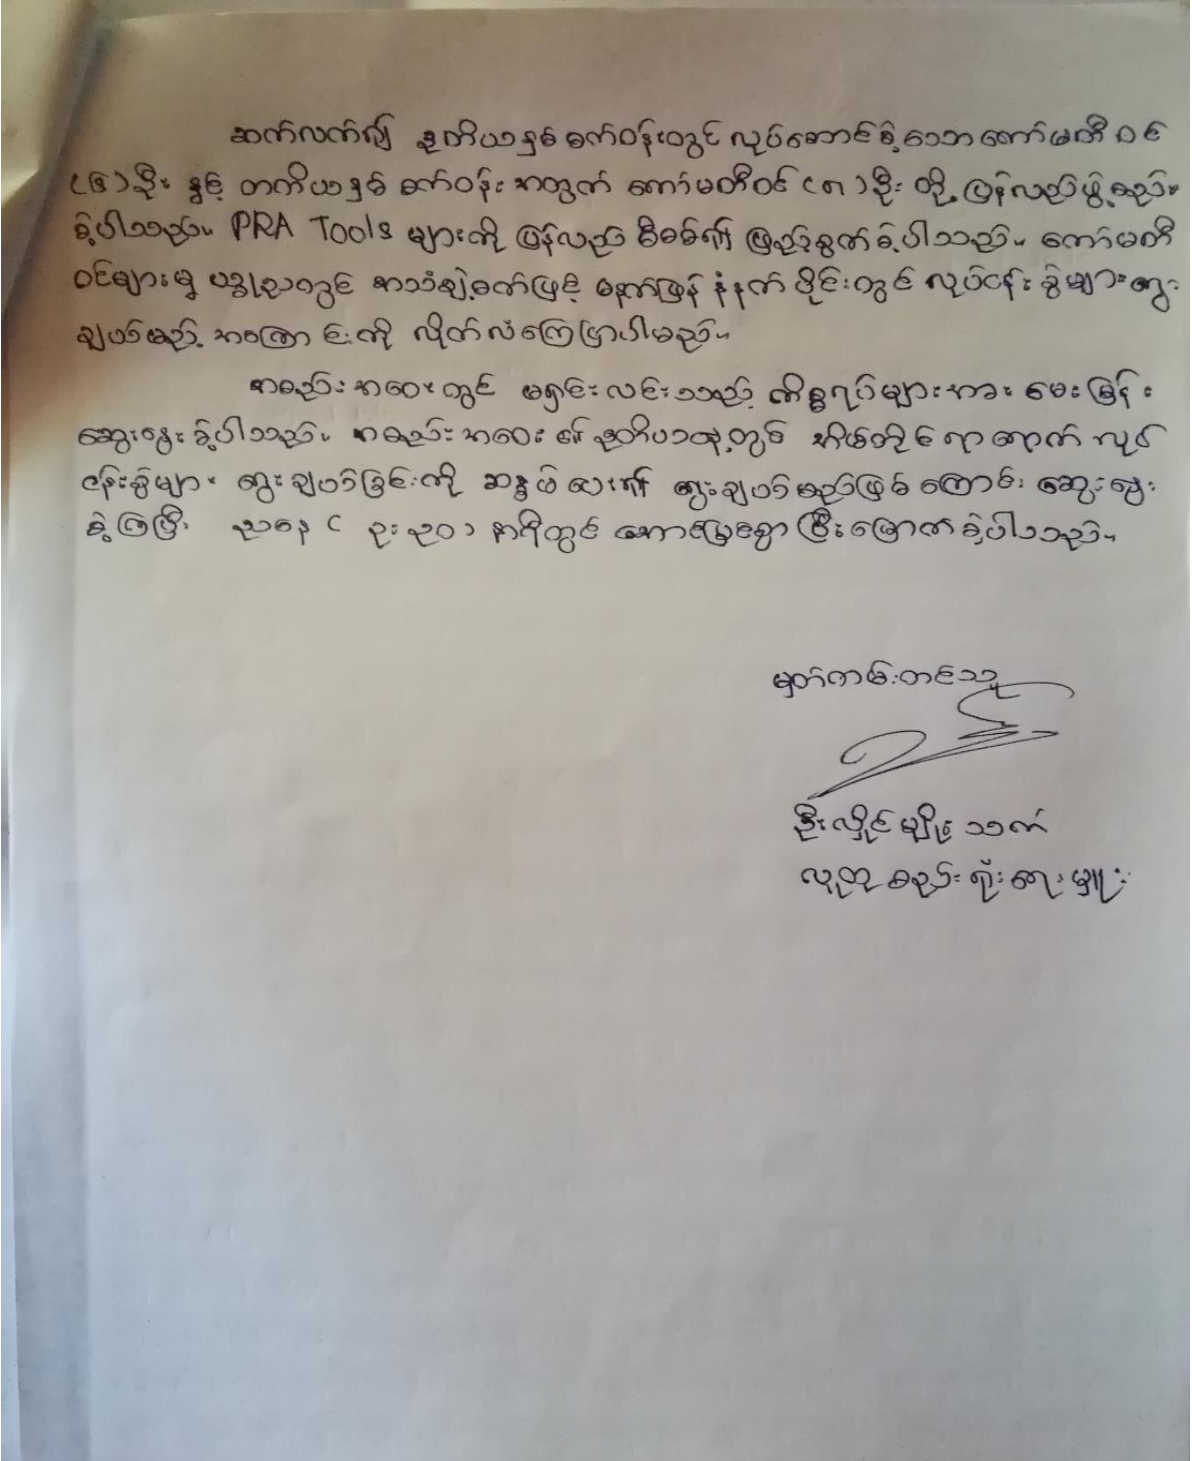 ဆက်လက်၍ ဒုတိယနှစ် စက်ဝန်းတွင် လုပ်ဆောင်ခဲ့သော ကော်မတီဝင်
(၆)ဦး နှင့် တတိယနှစ် စက်ဝန်း အတွက် ကော်မတီဝင် (၈)ဦး တို့ ပြန်လည်ဖွဲ့စည်း
ခဲ့ပါသည်။ PRA Tools များကို ပြန်လည် စီစစ်၍ ဖြည့်စွက်ခဲ့ပါသည်။ ကော်မတီ
ဝင်များမှ ပဒူညတွင် အသံချဲ့စက်ဖြင့် မနက်ဖြန် နံနက်ပိုင်းတွင် လုပ်ငန်းခွဲများ ရွေး
ချယ်မည့် အကြောင်းကို လိုက်လံကြေငြာပါမည်။
အစည်းအဝေးတွင် မရှင်းလင်းသည့် ကိစ္စရပ်များအား မေးမြန်း
ဆွေးနွေးခဲ့ပါသည်။ အစည်းအဝေး၏ ဒုတိယနေ့တွင် အိမ်တိုင်ရာရောက် လုပ်
ငန်းခွဲများ ရွေးချယ်ခြင်းကို ဆန္ဒမဲပေး၍ ရွေးချယ်မည်ဖြစ်ကြောင်း ဆွေးနွေး
ခဲ့ကြပြီး ညနေ ( ၃း၃၀ ) နာရီတွင် အောင်မြင်စွာ ပြီးမြောက်ခဲ့ပါသည်။
မှတ်တမ်းတင်သူ
ဦးလှိုင်မျိုးသက်
လူထုစည်းရုံးရေးမှူး